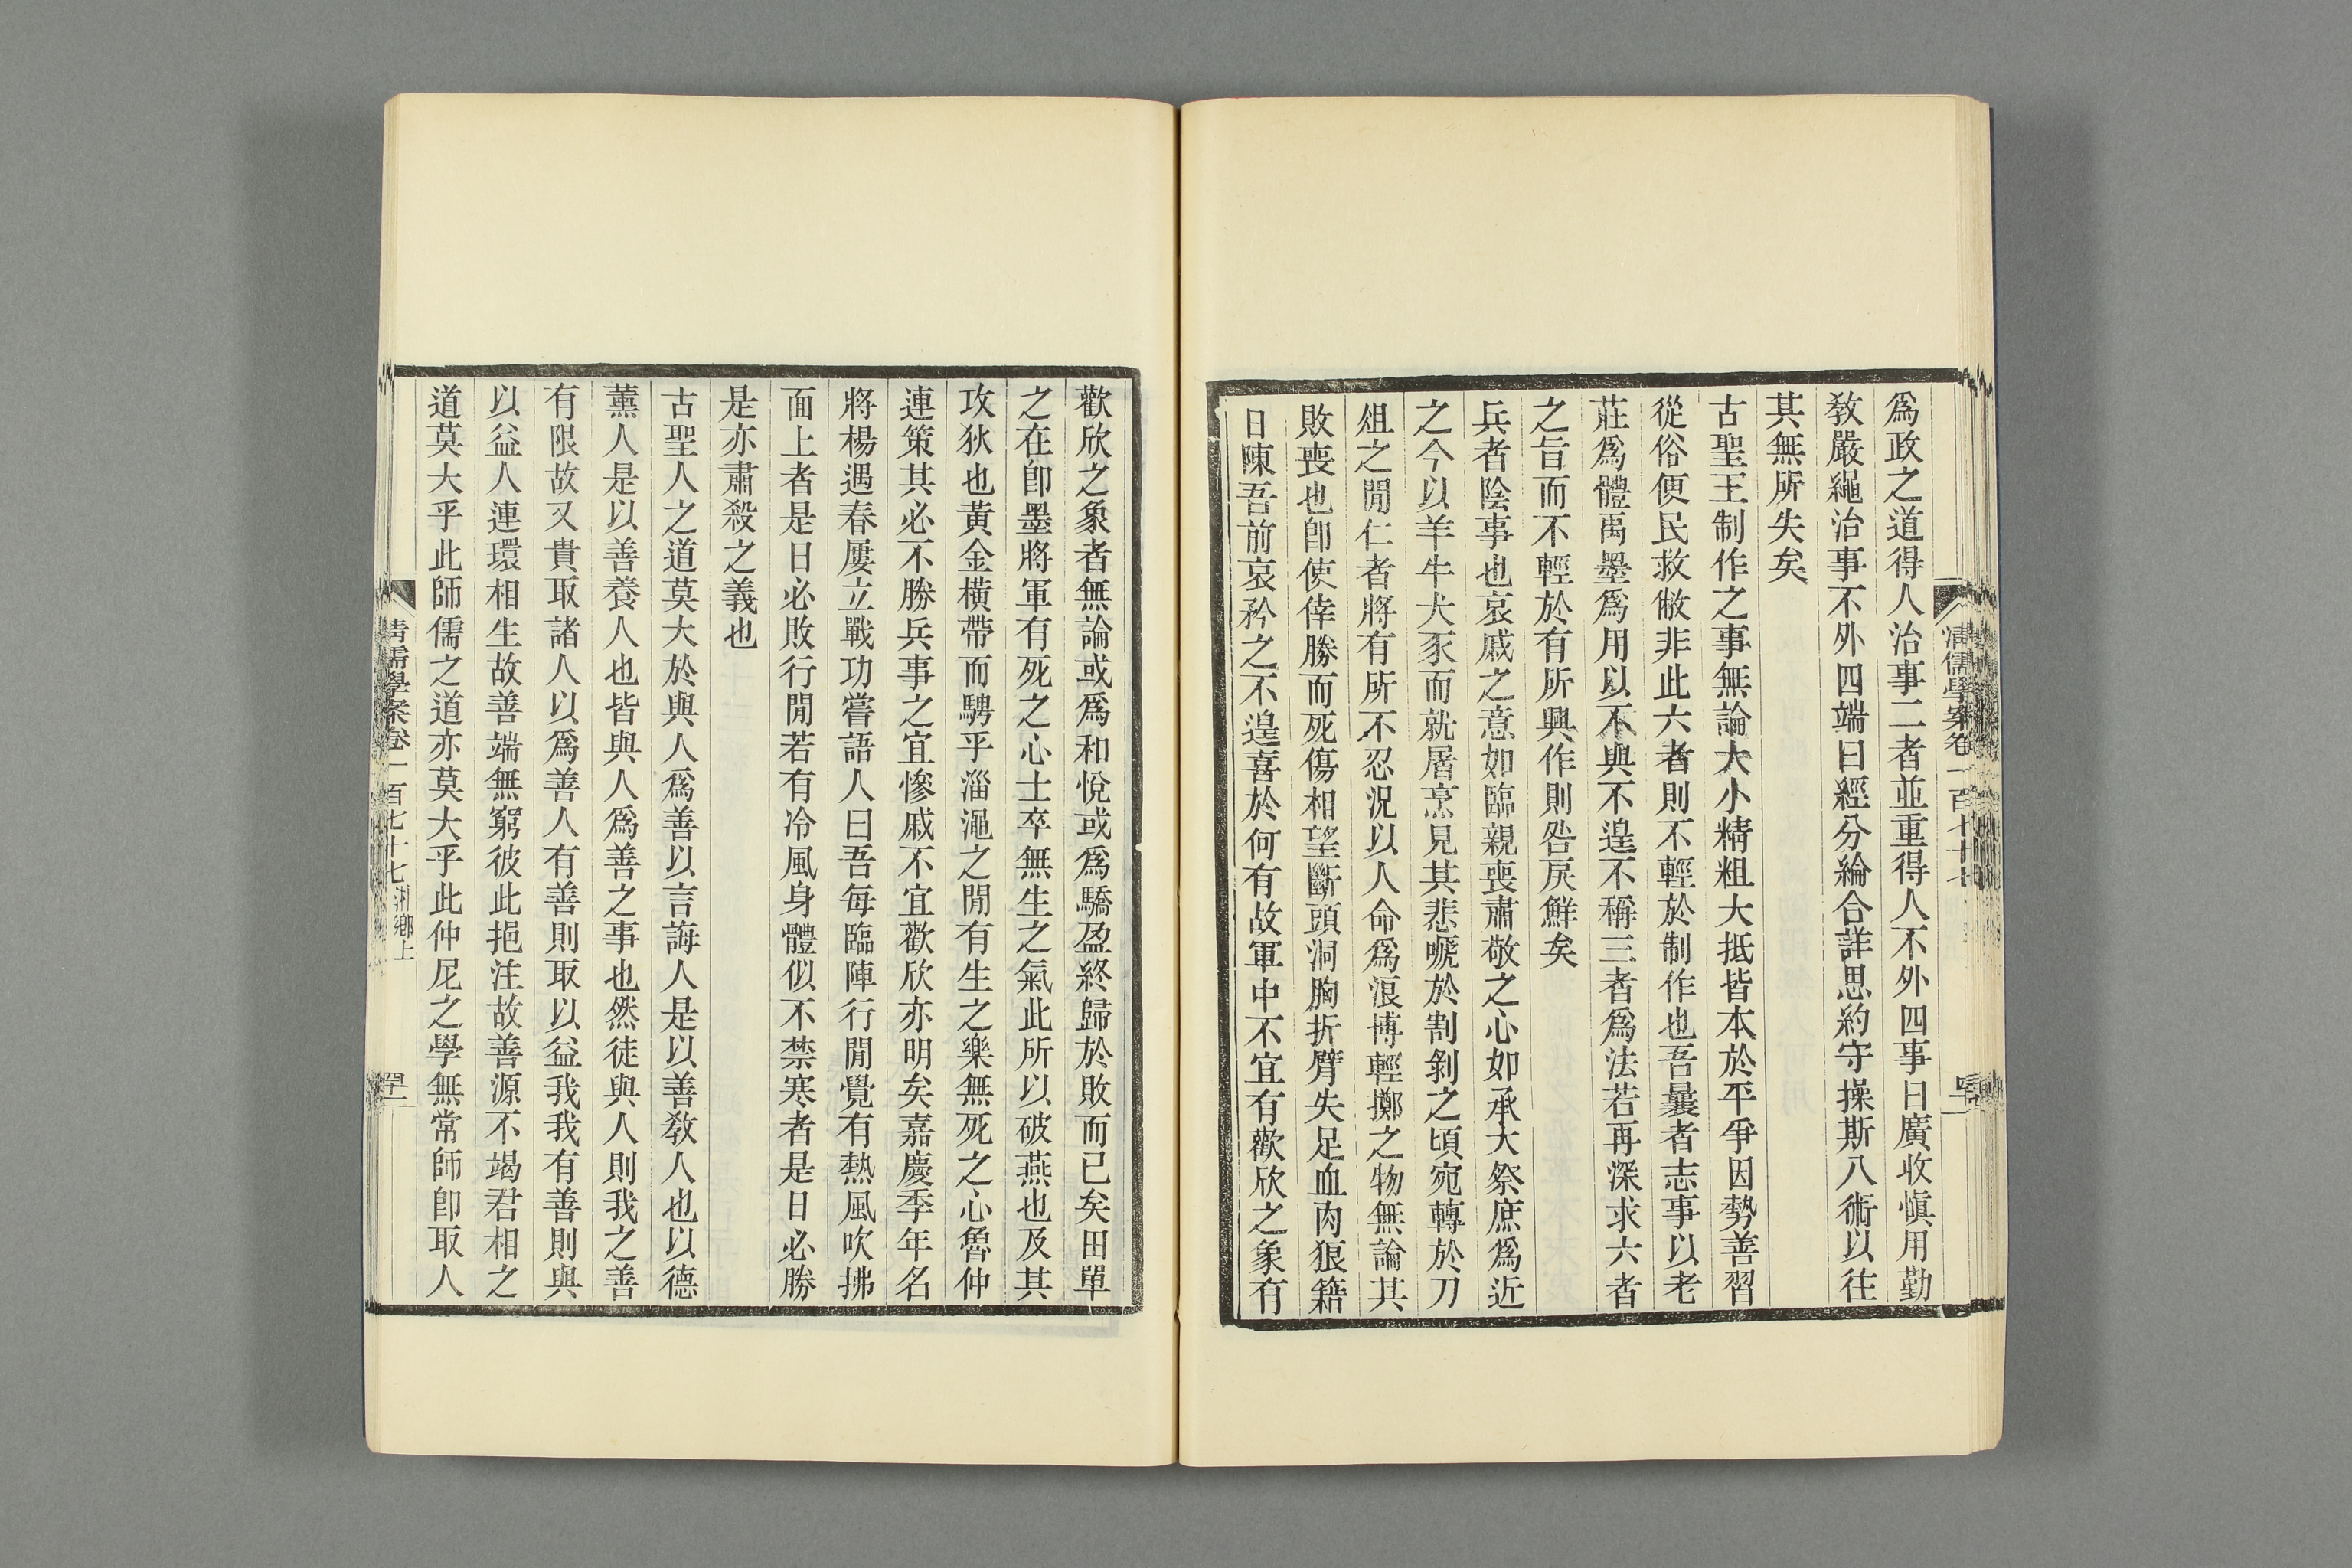 爲政之道得人治事二者並重得人不外四事曰廣收愼用勤
敎嚴繩治事不外四端曰經分綸合詳思約守操斯八術以往
其無所失矣
古聖王制作之事無論大小精粗大抵皆本於平爭因勢善習
從俗便民救敝非此六者則不輕於制作也吾曩者志事以老
莊爲體禹墨爲用以不與不遑不稱三者爲法若再深求六者
之旨而不輕於有所興作則咎戾鮮矣
兵者陰事也哀戚之意如臨親喪肅敬之心如承大祭庶爲近
之今以羊牛犬豕而就屠烹見其悲嗁於割剝之頃宛轉於刀
俎之閒仁者將有所不忍況以人命爲浪博輕擲之物無論其
敗喪也卽使倖勝而死傷相望斷頭洞胸折臂失足血肉狼籍
日陳吾前哀矜之不遑喜於何有故軍中不宜有歡欣之象有
歡欣之象者無論或爲和悅或爲驕盈終歸於敗而已矣田單
之在卽墨將軍有死之心士卒無生之氣此所以破燕也及其
攻狄也黃金橫帶而騁乎淄澠之閒有生之樂無死之心魯仲
連策其必不勝兵事之宜慘戚不宜歡欣亦明矣嘉慶季年名
將楊遇春屢立戰功嘗語人曰吾每臨陣行閒覺有熱風吹拂
面上者是日必敗行閒若有冷風身體似不禁寒者是日必勝
是亦肅殺之義也
古聖人之道莫大於與人爲善以言誨人是以善敎人也以德
薰人是以善養人也皆與人爲善之事也然徒與人則我之善
有限故又貴取諸人以爲善人有善則取以益我我有善則與
以益人連環相生故善端無窮彼此挹注故善源不竭君相之
道莫大乎此師儒之道亦莫大乎此仲尼之學無常師卽取人
清儒學案卷一百七十七 湘鄉上